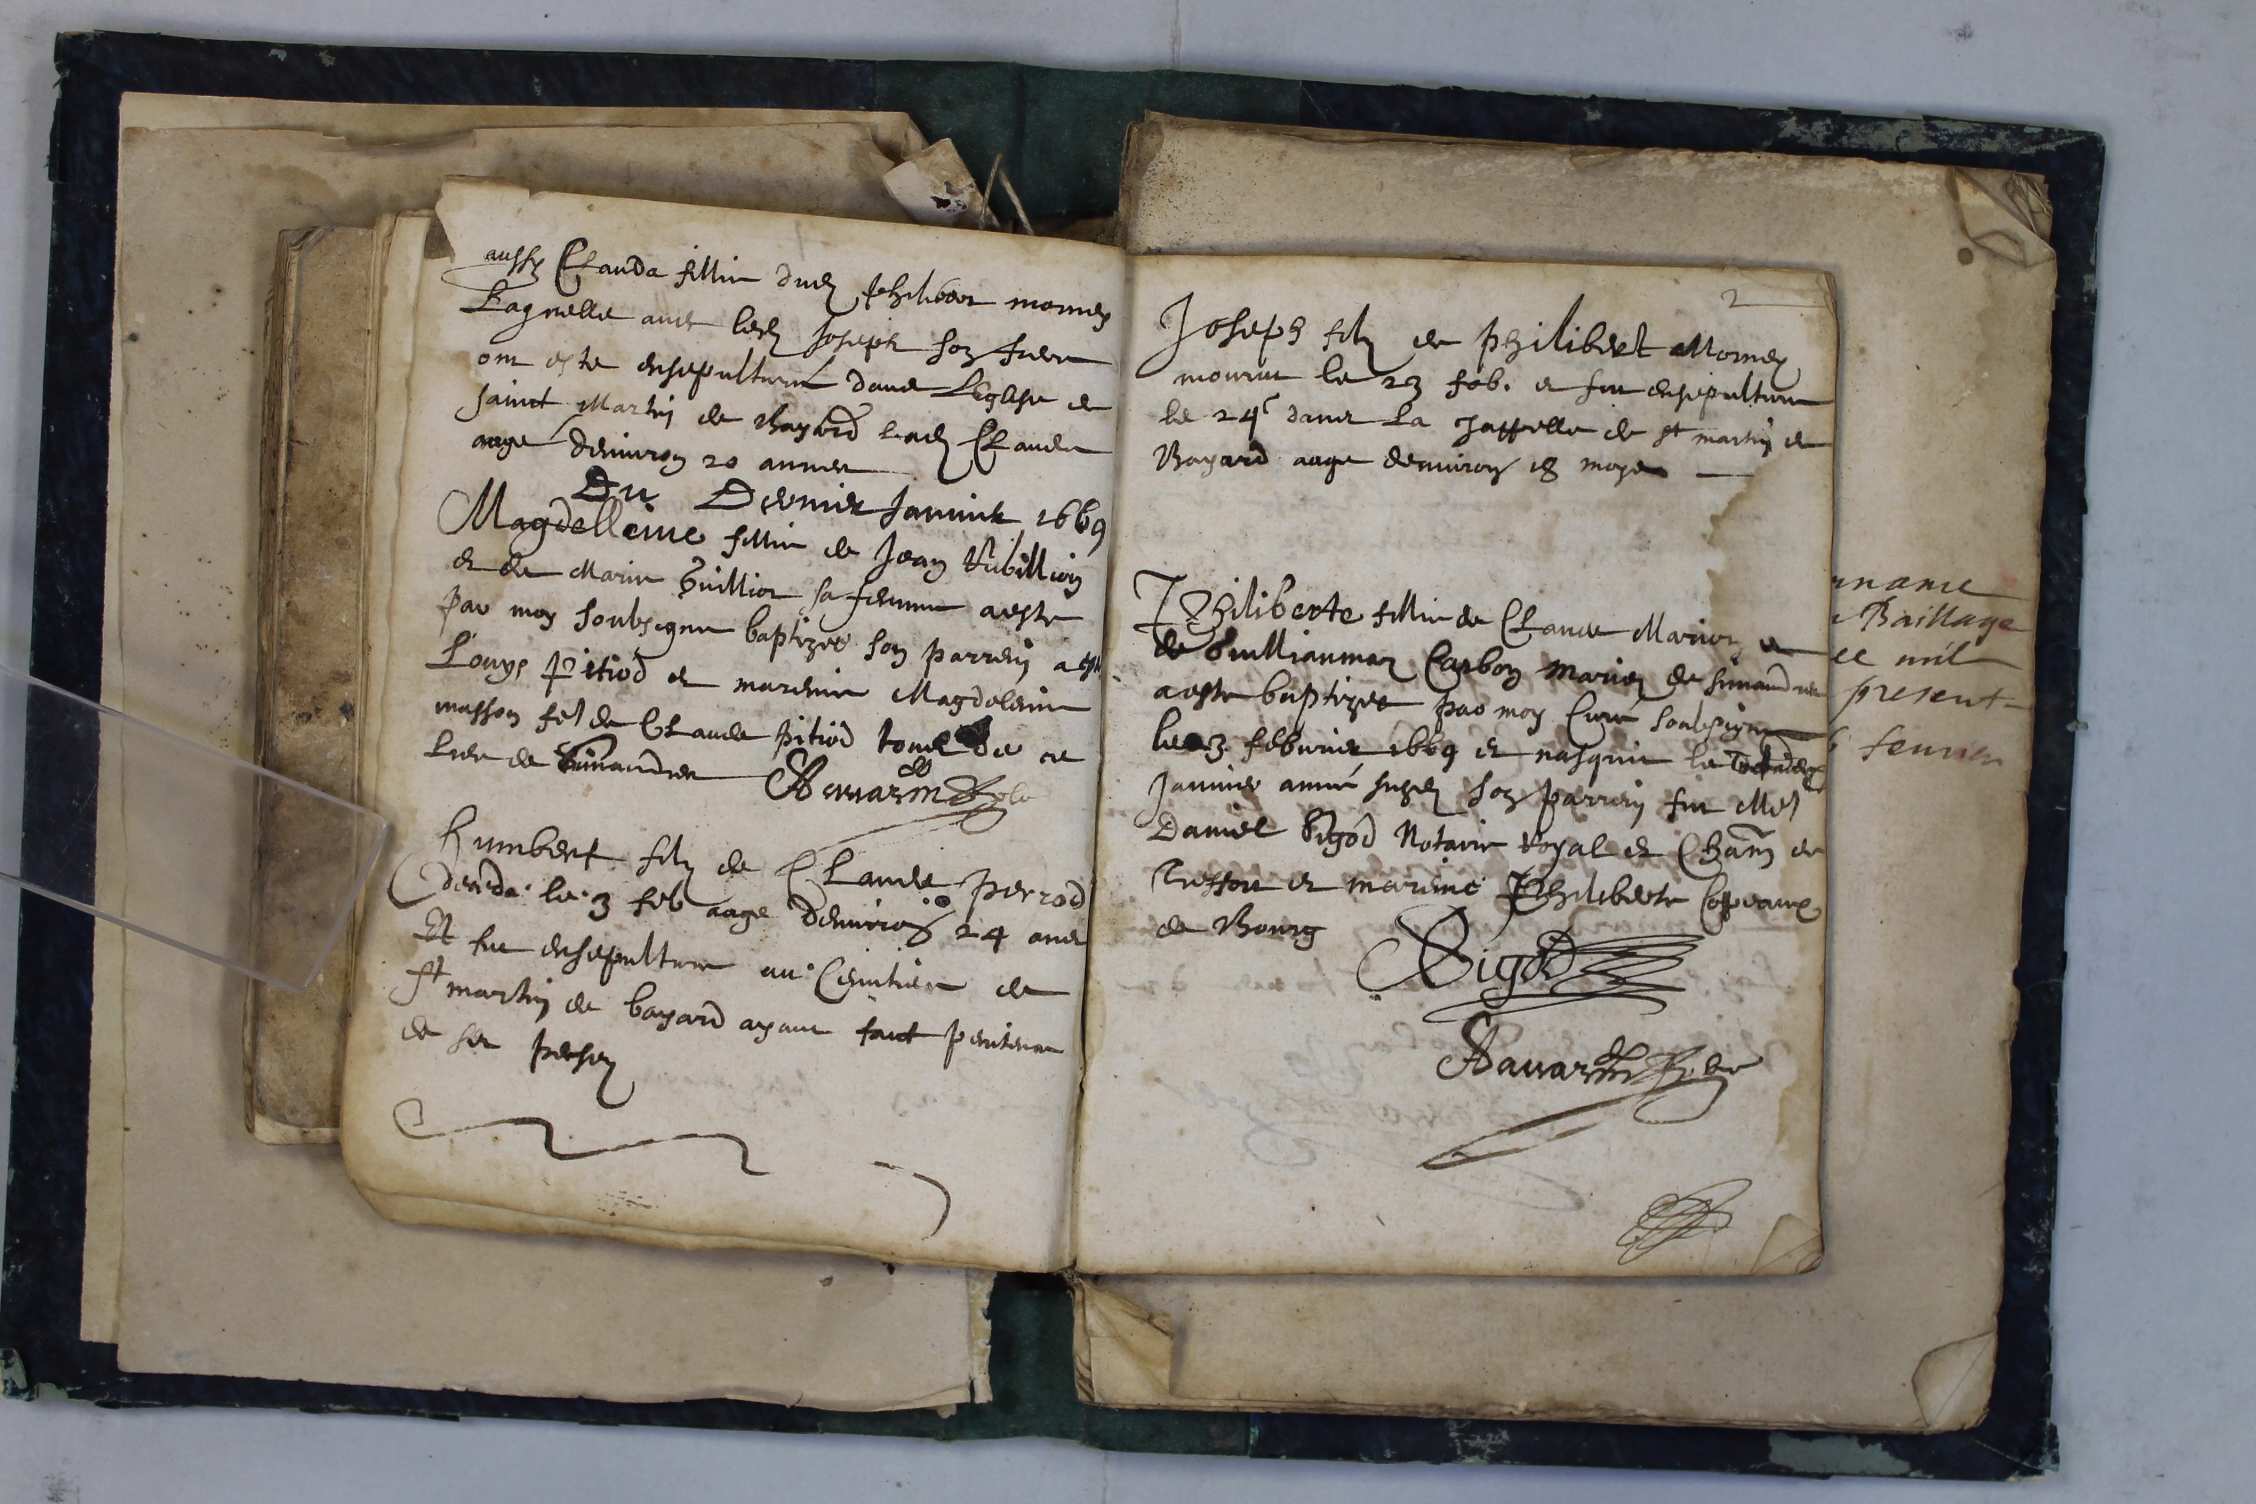 aussy Clauda fillie dud Philibert mornex
Laquelle avec led Joseph son frere
ont este ensepulturé dans L'Eglise de
sainct Martin de Bayard lad Clauda
aagé d'environ 20 annees
Du Dernier Janvier 1669
Magdelleine fillie de Jean Rubillion
et de Marie Guillion sa femme a este
par moy soubsigne baptizee son parrein a esté
Louys Pitiod et mareine Magdeleine
masson fe de Claude pitiod tous de ce
Lieu de Simandre
Savarin
Humbert filz de Claude Perrod
deceda le 3 feb aage d'environ 24 ans
Et fut ensepulture au Cemitiere de
st martin de bayard ayant faict penitence
de ses peches
2
Joseph filz de philibert Mornex
mourut le 23 feb. et fut ensepulture
le 24e dans la Chappelle de st martin de
Bayard aage d'environ 18 moys
Philiberte fillie de Claude Marion et
de Carbon mariez de simandre
a este baptizee par moy Curé soubsigne
le 3 febvrier 1669 et nasquit le
Janvier année susd son parrein fut Me
Daniel Bigod Notaire royal et Chatn de
Tressort et mareine Philiberte Copeaux
de Bourg
Bigod
Savarin
nance
Baillage
ce mil
present
fevrier